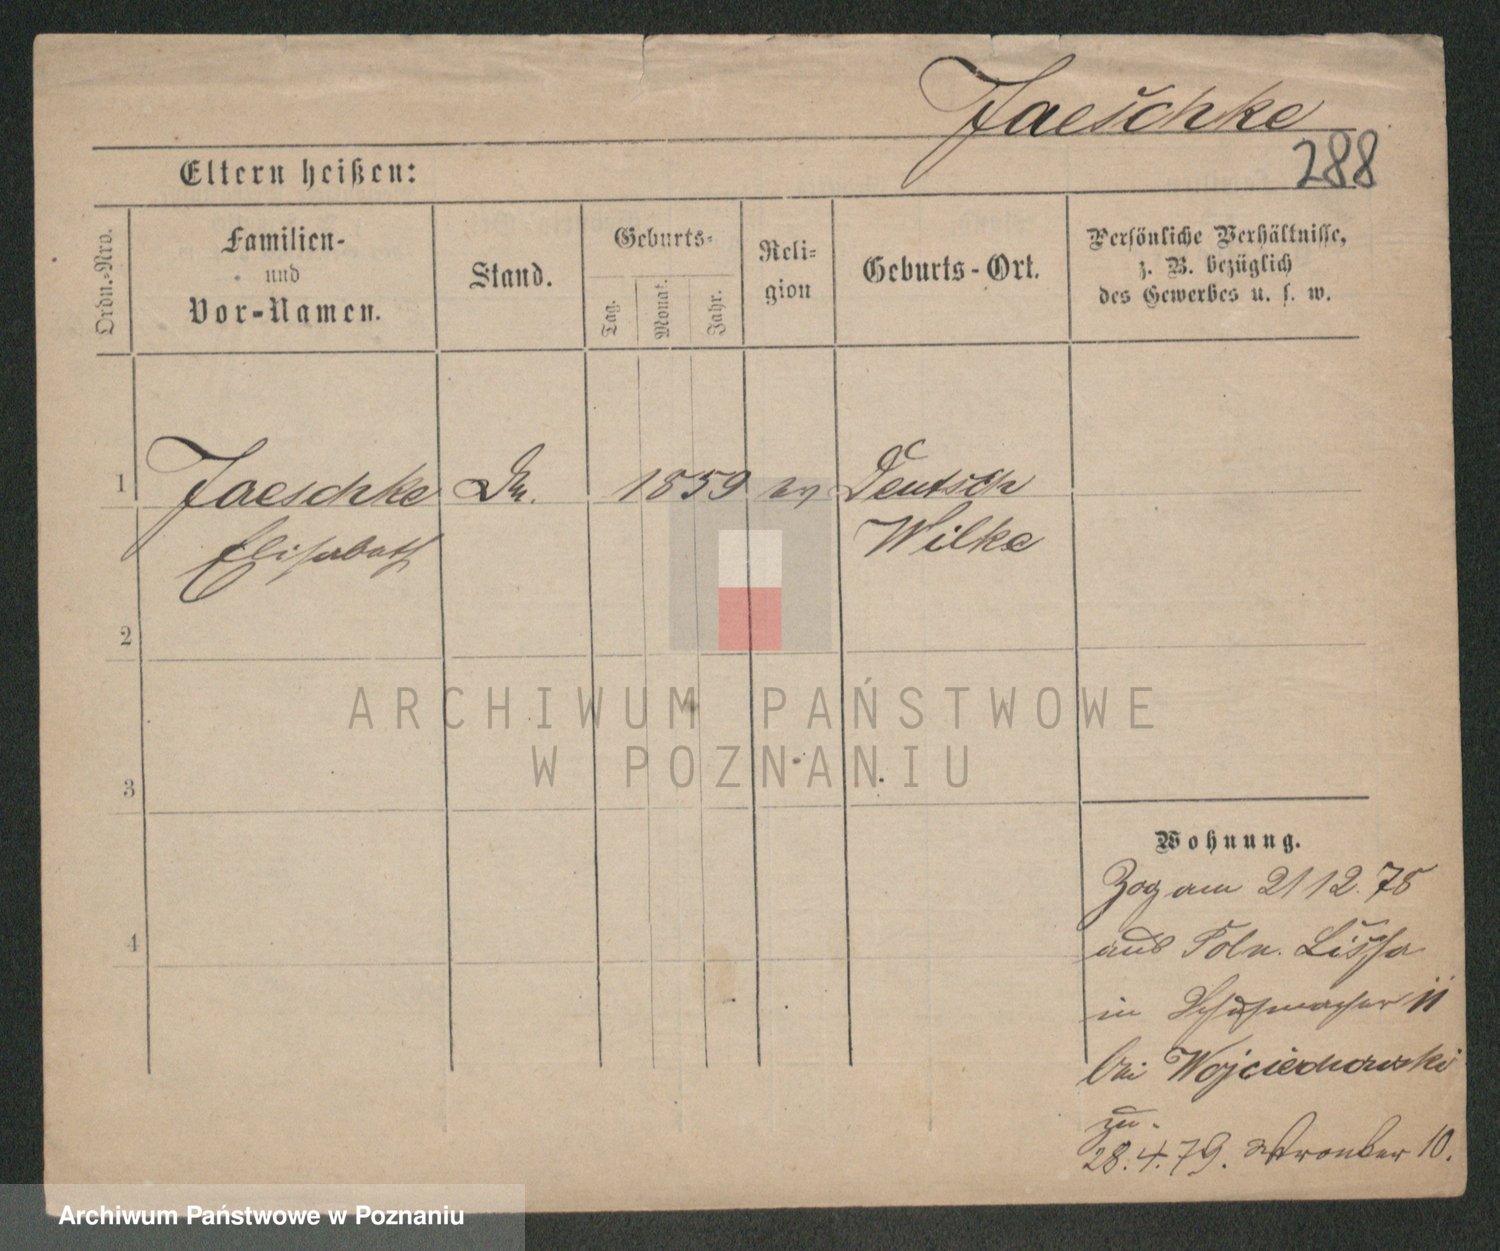 Jaeschke
288
Eltern heißen:
Ordn.-Nro.
Familien-
und
Vor-Namen.
Stand.
Geburts-
Tag.
Monat.
Jahr.
Reli-
gion
Geburts-Ort.
Persönliche Verhältnisse,
z. B. bezüglich
des Gewerbes u. s. w.
1 Jaeschke 1859 ev Deutsch
Elisabeth Wilke
2
3
4
ARCHIWUM PAŃSTWOWE
W POZNANIU
Wohnung.
Zog am 21 12. 78
aus Poln. Lissa
in Schuhmacher 11
bei Wojciechowski
zu.
28.4.79. Wronker 10.
Archiwum Państwowe w Poznaniu